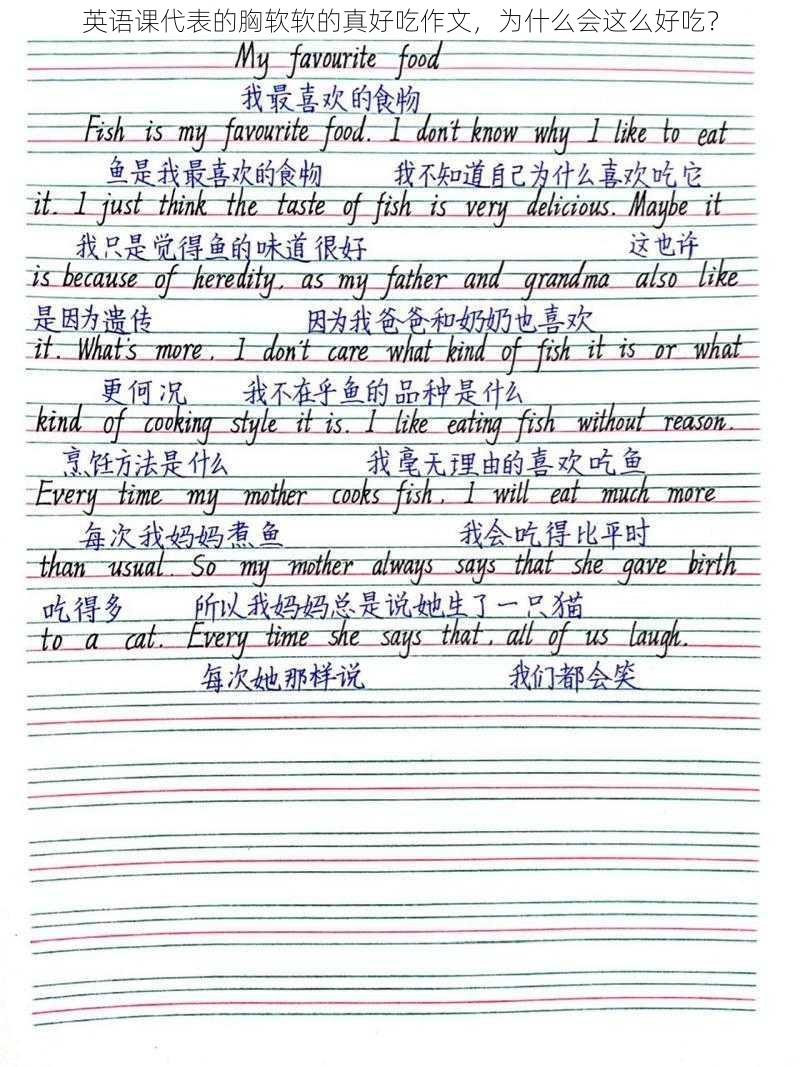 My favourite food
我最喜欢的食物
Fish is my favourite food. I don't know why I like to eat
鱼是我最喜欢的食物 我不知道自己为什么喜欢吃它
it. I just think the taste of fish is very delicious. Maybe it
我只是觉得鱼的味道很好 这也许
is because of heredity, as my father and grandma also like
是因为遗传 因为我爸爸和奶奶也喜欢
it. What's more, I don't care what kind of fish it is or what
更何况 我不在乎鱼的品种是什么
kind of cooking style it is. I like eating fish without reason.
烹饪方法是什么 我毫无理由的喜欢吃鱼
Every time my mother cooks fish, I will eat much more
每次我妈妈煮鱼 我会吃得比平时
than usual. So my mother always says that she gave birth
吃得多 所以我妈妈总是说她生了一只猫
to a cat. Every time she says that, all of us laugh.
每次她那样说 我们都会笑